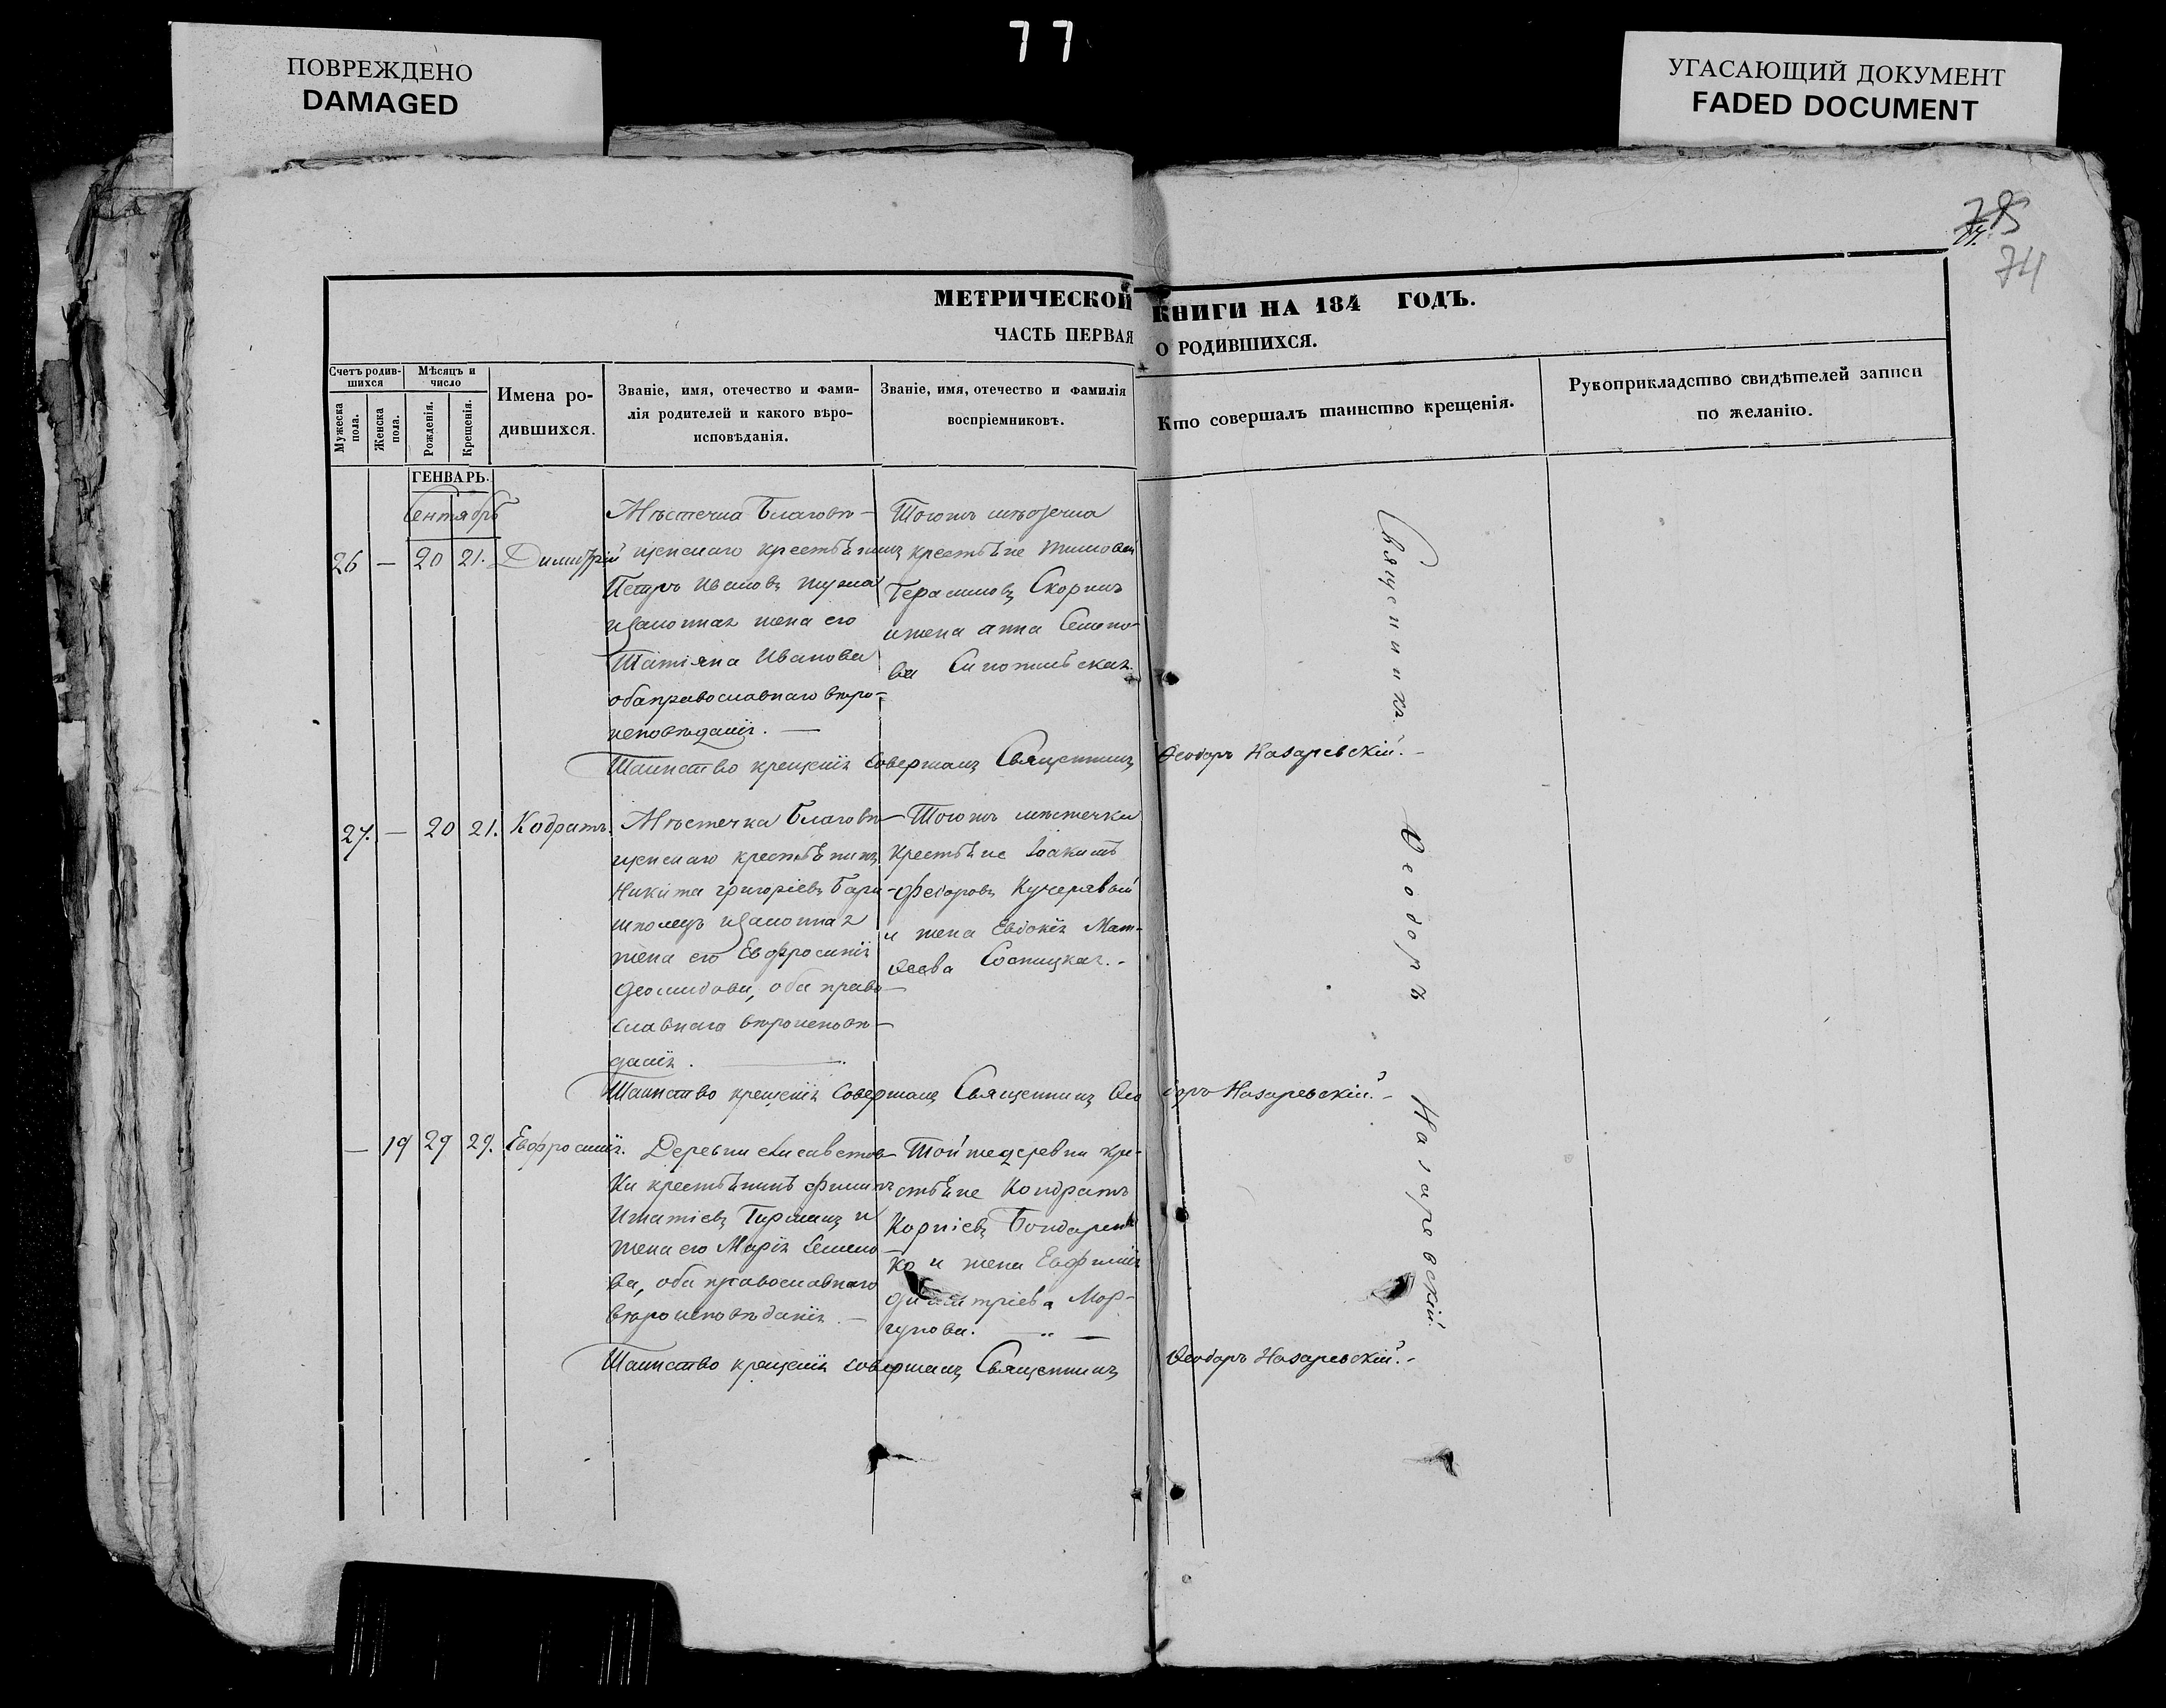 77
ПОВРЕЖДЕНО
DAMAGED
УГАСАЮЩИЙ ДОКУМЕНТ
FADED DOCUMENT
74
МЕТРИЧЕСКОЙ КНИГИ НА 184 ГОДЪ.
ЧАСТЬ ПЕРВАЯ О РОДИВШИХСЯ.
Счетъ родив-
шихся
Мужеска пола.
Женска пола.
Мѣсяцъ и
число
Рожденія.
Крещенія.
Имена ро-
дившихся.
Званіе, имя, отечество и фами-
лія родителей и какого вѣро-
исповѣданія.
Званіе, имя, отечество и фамилія
воспріемниковъ.
Кто совершалъ таинство крещенія.
Рукоприкладство свидѣтелей записи
по желанію.
ГЕНВАРЬ.
Сентябрь
26 — 20 21. Димитрій
Мѣстечка Благовѣ-
щенскаго крестьянинъ
Петръ Ивановъ
и законная жена его
Татіяна Иванова
оба православнаго вѣро-
исповѣданія. —
Тогожъ мѣстечка
крестьяне Тимофей
Герасимовъ Скорикъ
и жена Анна Семено-
ва
Таинство крещенія совершалъ Священникъ Ѳеодоръ Назаревскій. -
27. — 20 21. Кодратъ.
Мѣстечка Благовѣ-
щенскаго крестьянинъ
Никита Григоріевъ
и законная
жена его Евфросинія
Деомидова, оба право-
славнаго вѣроисповѣ-
данія.
Тогожъ мѣстечка
крестьяне Іоакимъ
Федоровъ Кучерявый
и жена Евдокія Мат-
ѳеева
Таинство крещенія совершалъ Священникъ Ѳеодоръ Назаревскій. -
— 19 29 29. Евфросинія.
Деревни Елисаветов-
ки крестьянинъ Филипъ
Игнатіевъ и
жена его Марія Семено-
ва, оба православнаго
вѣроисповѣданія. —
Той же деревни кре-
стьяне Кондратъ
Корніевъ Бондарен-
ко и жена Евфимія
Димитріева Мор-
гунова.
Таинство крещенія совершалъ Священникъ Ѳеодоръ Назаревскій. -
Священникъ Ѳеодоръ Назаревскій.